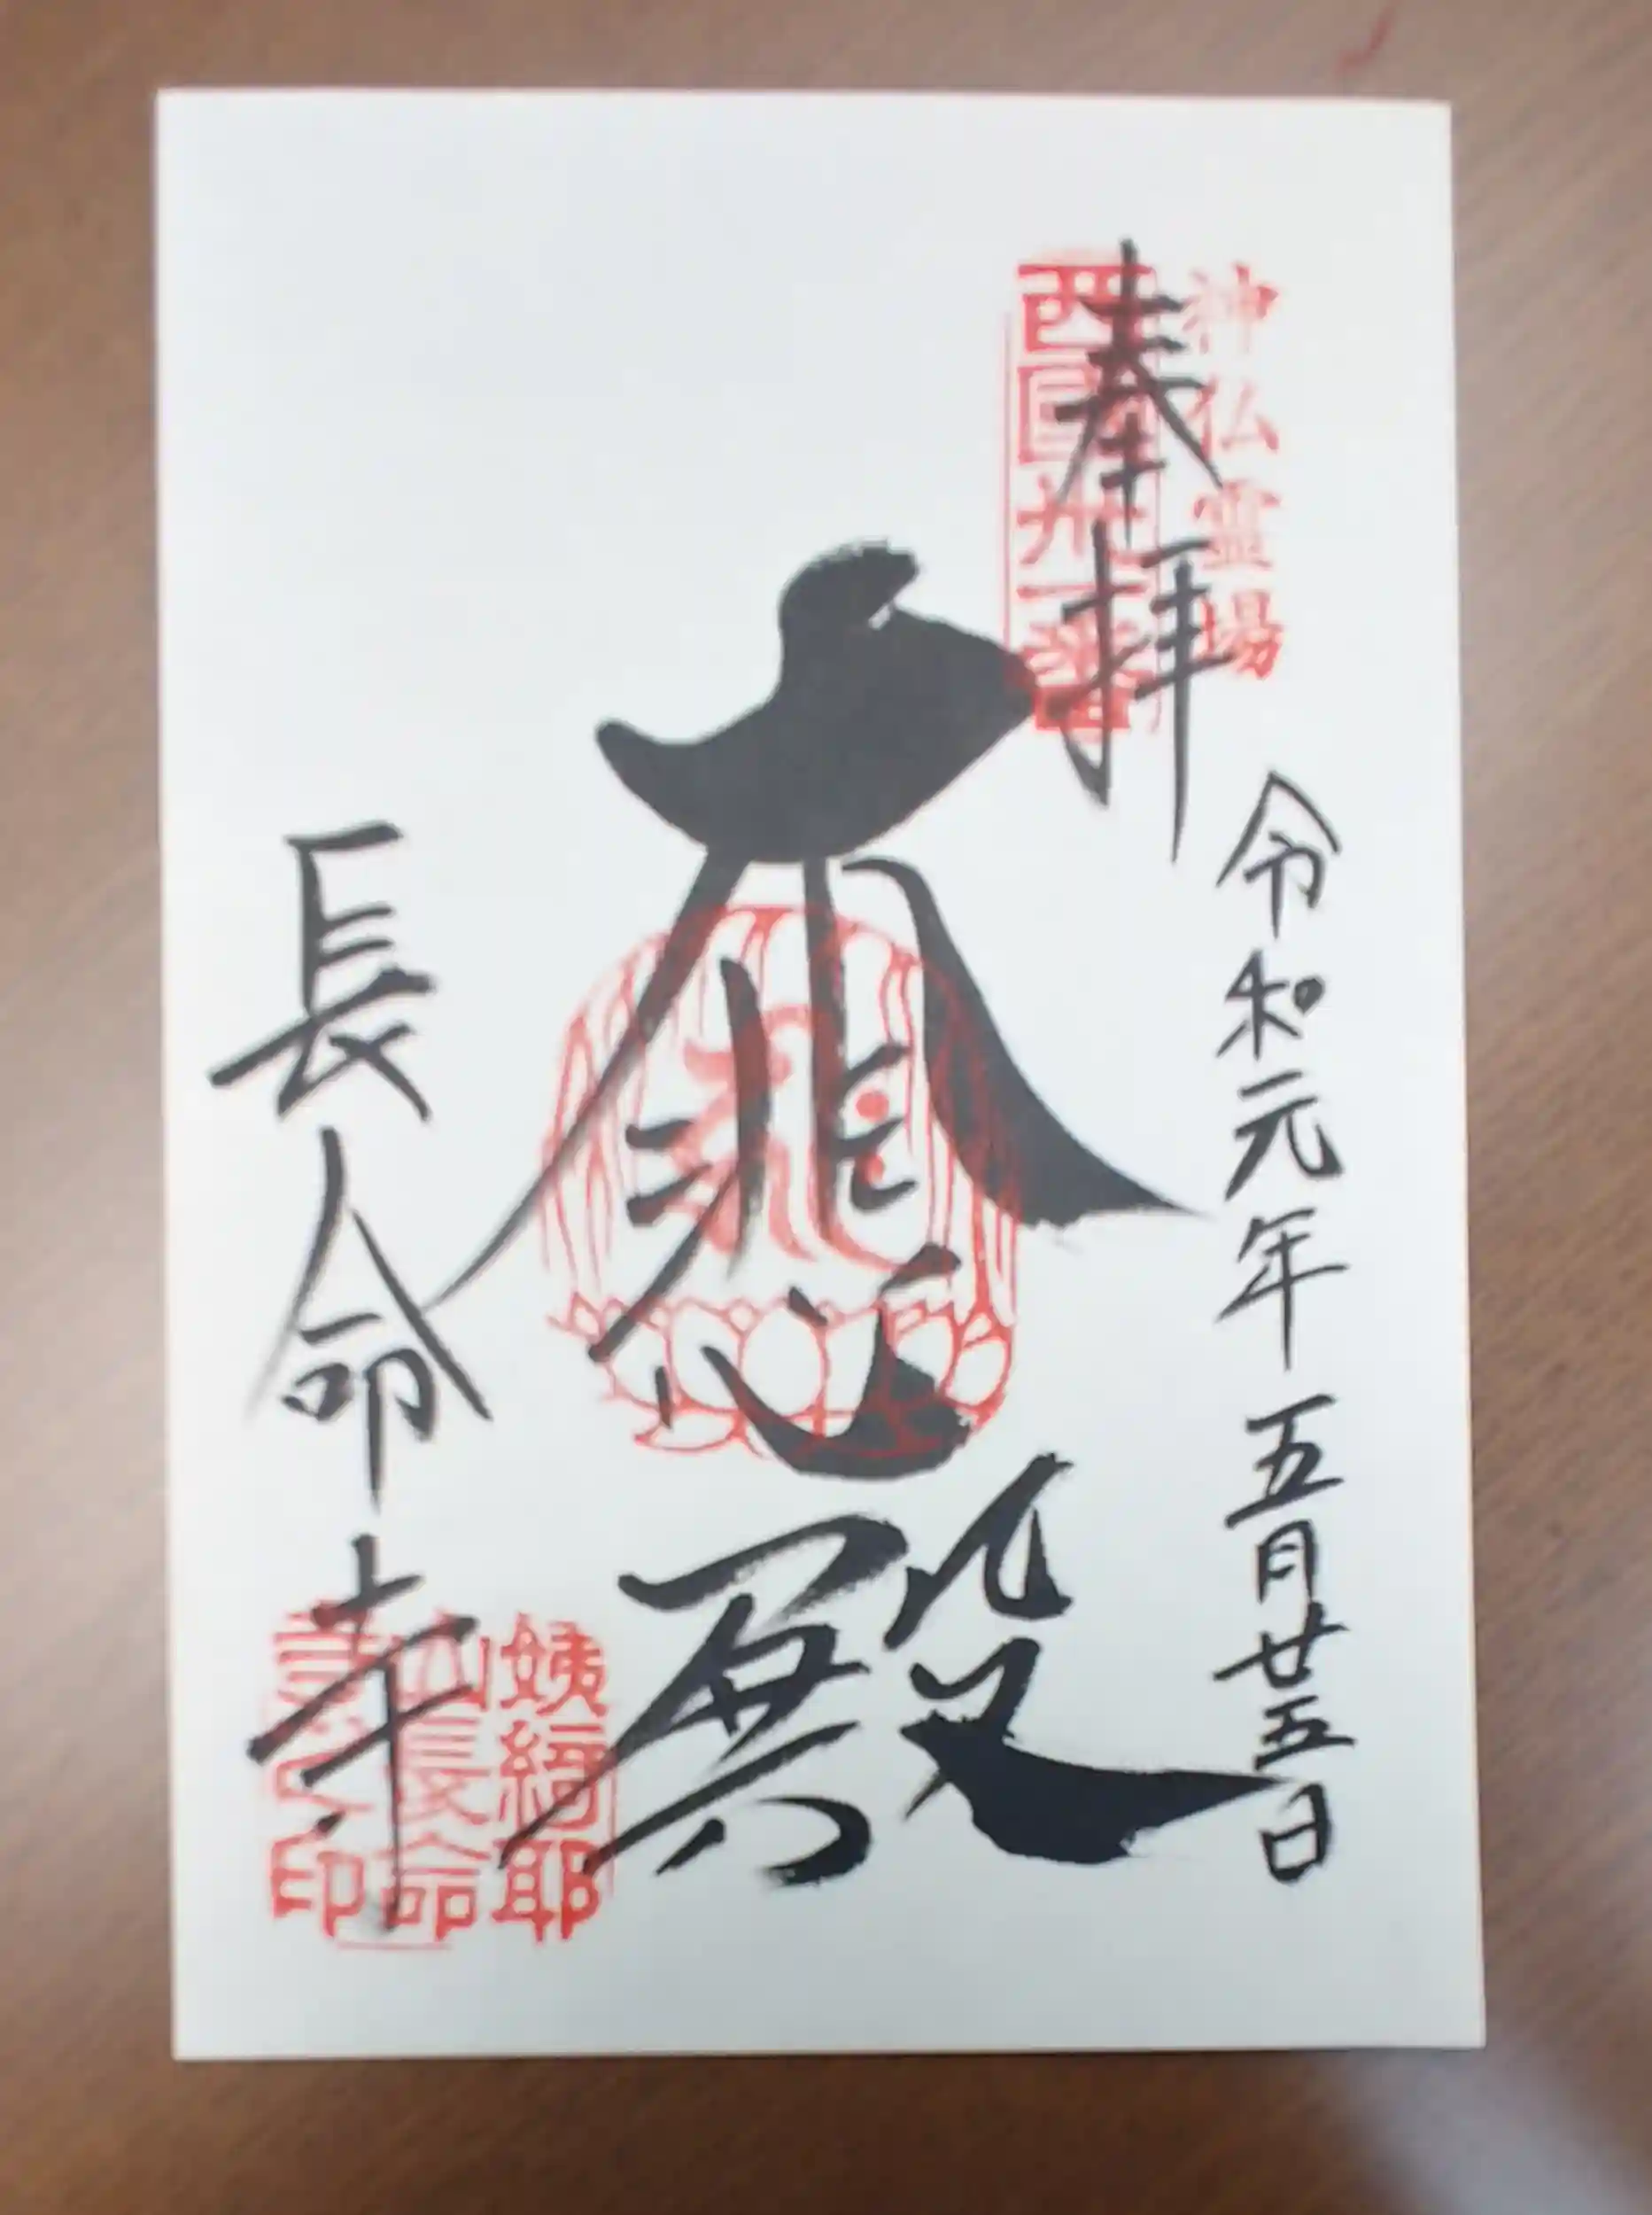 神仏霊場
奉拝
西国卅一番
令和元年五月廿五日
大悲殿
長命寺
姨綺耶
山長命
寺之印